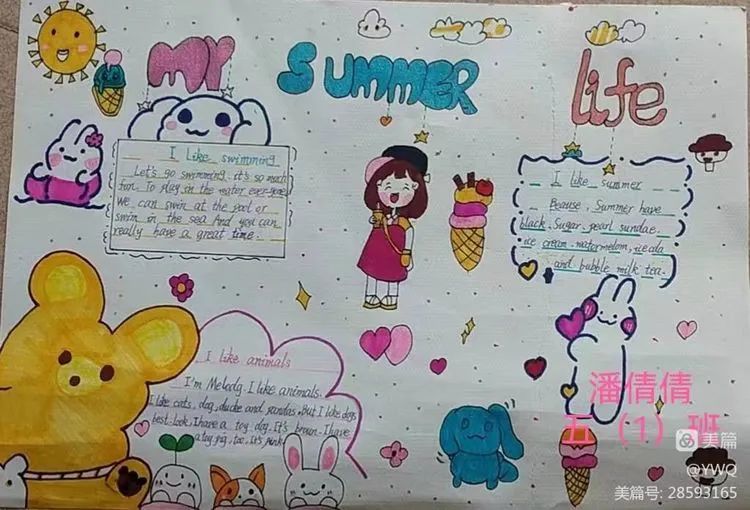 MY SUMMER life
I like swimming
Let's go swimming. it's so much
fun. To play in the water everyone
We can swim at the pool or
swim in the sea And you can
really have a great time.
I like summer
Beause, Summer have
black Sugar pearl sundae.
ice cream. watermelom, icecola
and bubble milk tea.
I like animals
I'm Melody. I like animals.
I like cats, dog, ducke and pandas. But I like dogs
best. look, I have a toy dog. It's brown. I have
a toy pig, too, it's pink
潘倩倩
五（1）班
美篇
@YWQ
美篇号: 28593165